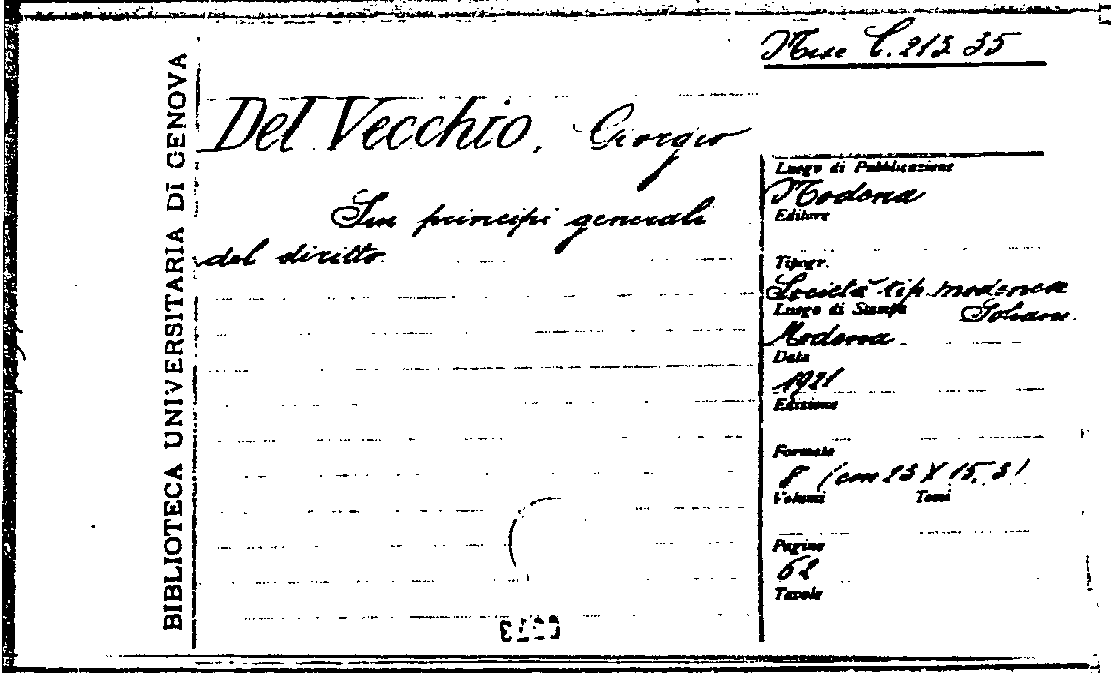 Misc C.213.35
BIBLIOTECA UNIVERSITARIA DI GENOVA
Del Vecchio, Giorgio
Sui principi generali
del diritto
Luogo di Pubblicazione
Modena
Editore
Tipogr.
Società tip. modenese
Luogo di Stampa
Modena
Data
1921
Edizione
Formato
8 (cm 23 X 15,3)
Volumi Tomi
Pagine
62
Tavole